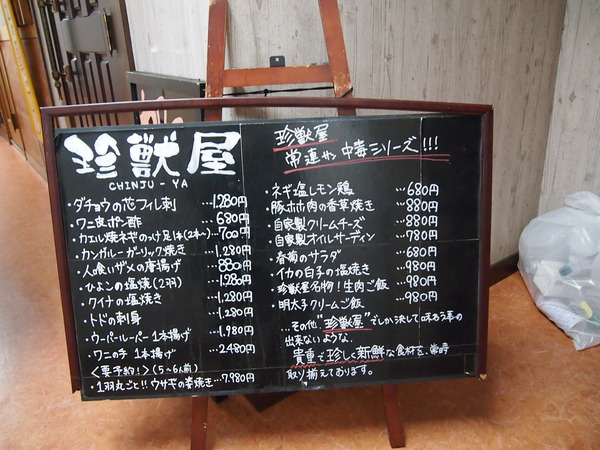 珍獣屋
CHINJU-YA
・ダチョウの花フィレ刺 …1,280円
・ワニ皮ポン酢 …680円
・カエル焼ネギのっけ足1本(2本〜)…700円
・カンガルーガーリック焼き …1,280円
・人喰いザメの唐揚げ …880円
・ひよこの塩焼(2羽) …1,280円
・クイナの塩焼き …1,280円
・トドの刺身 …1,280円
・ウーパールーパー1本揚げ …1,980円
・ワニの手 1本揚げ …2,480円
〈要予約!〉(5〜6人前)
・1羽丸ごと!!ウサギの姿焼き…7,980円
珍獣屋
常連サン中毒シリーズ!!!
・ネギ塩レモン鶏 …680円
・豚ホホ肉の香草焼き …880円
・自家製クリームチーズ …880円
・自家製オイルサーディン …780円
・春菊のサラダ …680円
・イカの白子の塩焼き …980円
・珍獣屋名物!生肉ご飯 …980円
・明太子クリームご飯 …980円
…その他、"珍獣屋"でしか決して味わう事の
出来ないような、
貴重で珍しく新鮮な食材を、常時
取り揃えております。